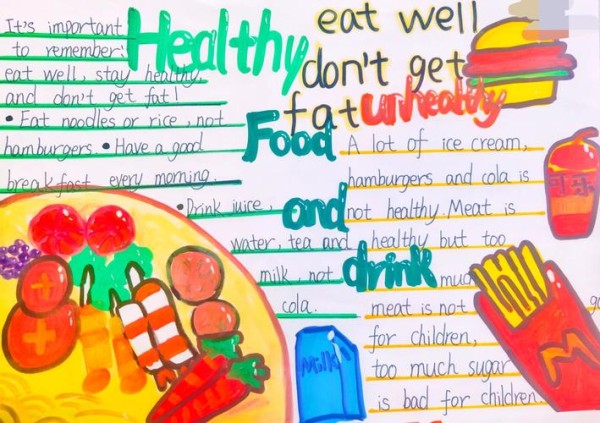 Healthy
eat well
don't get
fat
unhealthy
Food
and
drink
It's important
to remember:
eat well, stay healthy,
and don't get fat!
•Eat noodles or rice, not
hamburgers. •Have a good
breakfast every morning.
•Drink juice,
water, tea and
milk, not
cola.
A lot of ice cream,
hamburgers and cola is
not healthy. Meat is
healthy but too
much
meat is not
for children,
too much sugar
is bad for children.
Milk
M